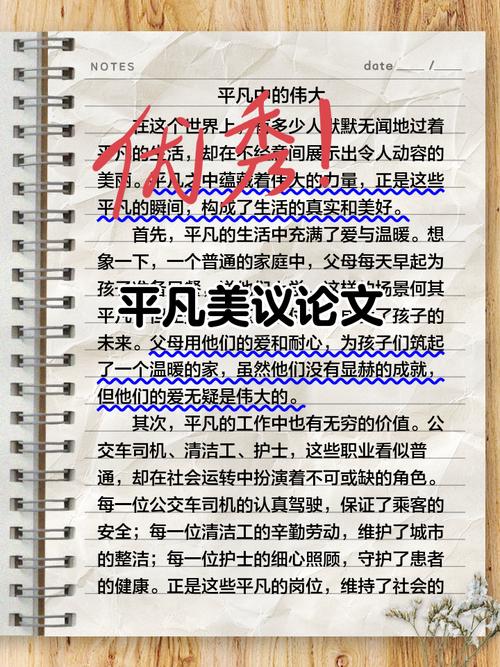 NOTES
date ____ / ____
平凡中的伟大
优秀!
在这个世界上,有多少人默默无闻地过着
平凡的生活,却在不经意间展示出令人动容的
美丽。平凡之中蕴藏着伟大的力量,正是这些
平凡的瞬间,构成了生活的真实和美好。
首先,平凡的生活中充满了爱与温暖。想
象一下,一个普通的家庭中,父母每天早起为
孩子
这样的场景何其
平凡美议论文
平
了孩子的
未来。父母用他们的爱和耐心,为孩子们筑起
了一个温暖的家,虽然他们没有显赫的成就,
但他们的爱无疑是伟大的。
其次,平凡的工作中也有无穷的价值。公
交车司机、清洁工、护士,这些职业看似普
通,却在社会运转中扮演着不可或缺的角色。
每一位公交车司机的认真驾驶,保证了乘客的
安全;每一位清洁工的辛勤劳动,维护了城市
的整洁;每一位护士的细心照顾,守护了患者
的健康。正是这些平凡的岗位,维持了社会的